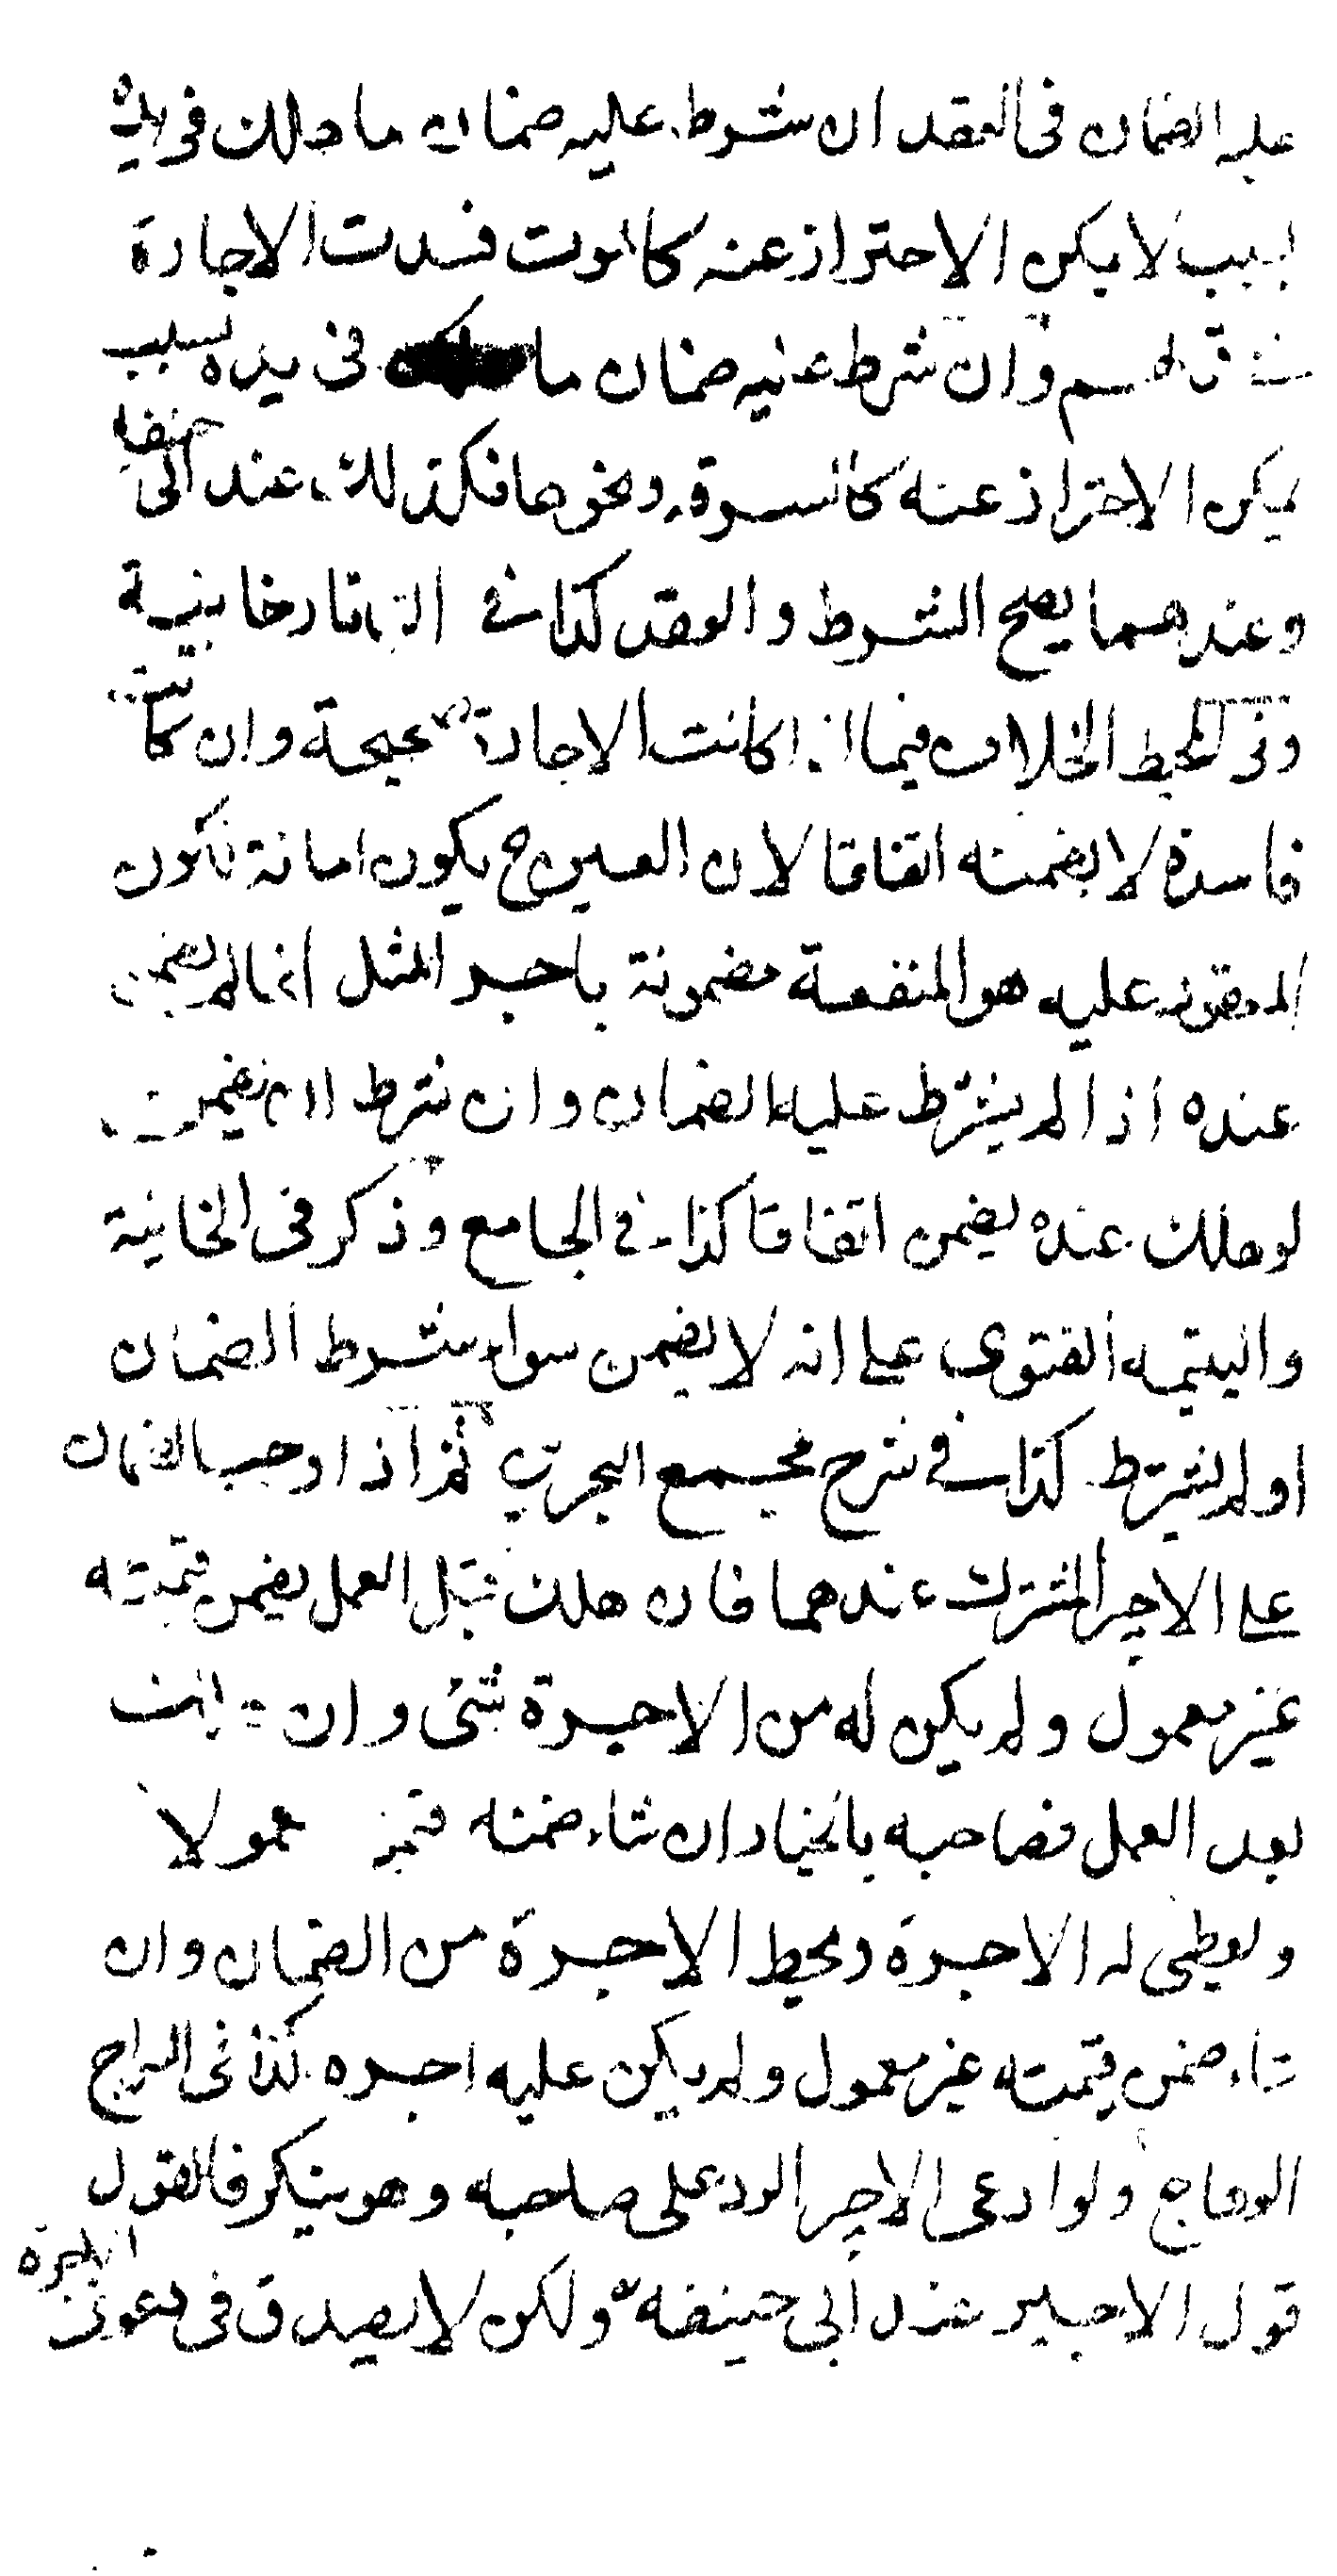 عليه الضمان في العقد ان شرط عليه ضمان ما هلك في يده
بسبب لا يمكن الاحتراز عنه كالموت فسدت الاجارة
وان شرط عليه ضمان ما في يده بسبب
يمكن الاحتراز عنه كالسرقة ونحوها فكذلك عند ابي حنيفة
وعندهما يصح الشرط والعقد كذا في التاتارخانية
وفي المحيط الخلاف فيما اذا كانت الاجارة صحيحة وان كانت
فاسدة لا يضمنه اتفاقا لان العين ح يكون امانة لكون
المعقود عليه هو المنفعة مضمونة باجر المثل انما لم يضمن
عنده اذا لم يشترط عليه الضمان وان شرط ان يضمن
لو هلك عنده يضمن اتفاقا كذا في الجامع وذكر في الخانية
واليتيمه الفتوى على انه لا يضمن سواء شرط الضمان
او لم يشترط كذا في شرح مجمع البحرين ثم اذا اوجب الضمان
على الاجير المشترك عندهما فان هلك قبل العمل يضمن قيمته
غير معمول ولم يكن له من الاجرة شئ وان
بعد العمل فصاحبه بالخيار ان شاء ضمنه معمولا
ويعطي له الاجرة ويحط الاجرة من الضمان وان
شاء ضمن قيمته غير معمول ولم يكن عليه اجره كذا في السراج
الوهاج ولو ادعى الاجير الرد على صاحبه وهو ينكر فالقول
قول الاجير عند ابي حنيفه ولكن لا يصدق في دعوى الاجرة